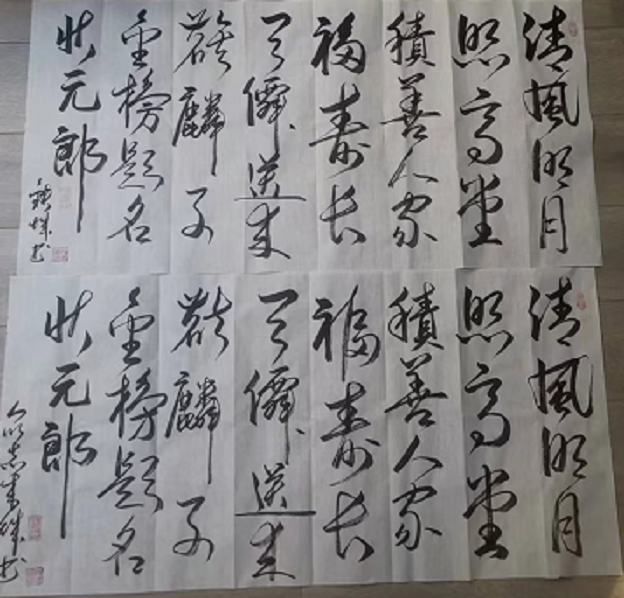 清風明月
照高堂
積善人家
福壽長
天僊送来
麒麟子
金榜題名
状元郎
清風明月
照高堂
積善人家
福壽長
天僊送来
麒麟子
金榜題名
状元郎